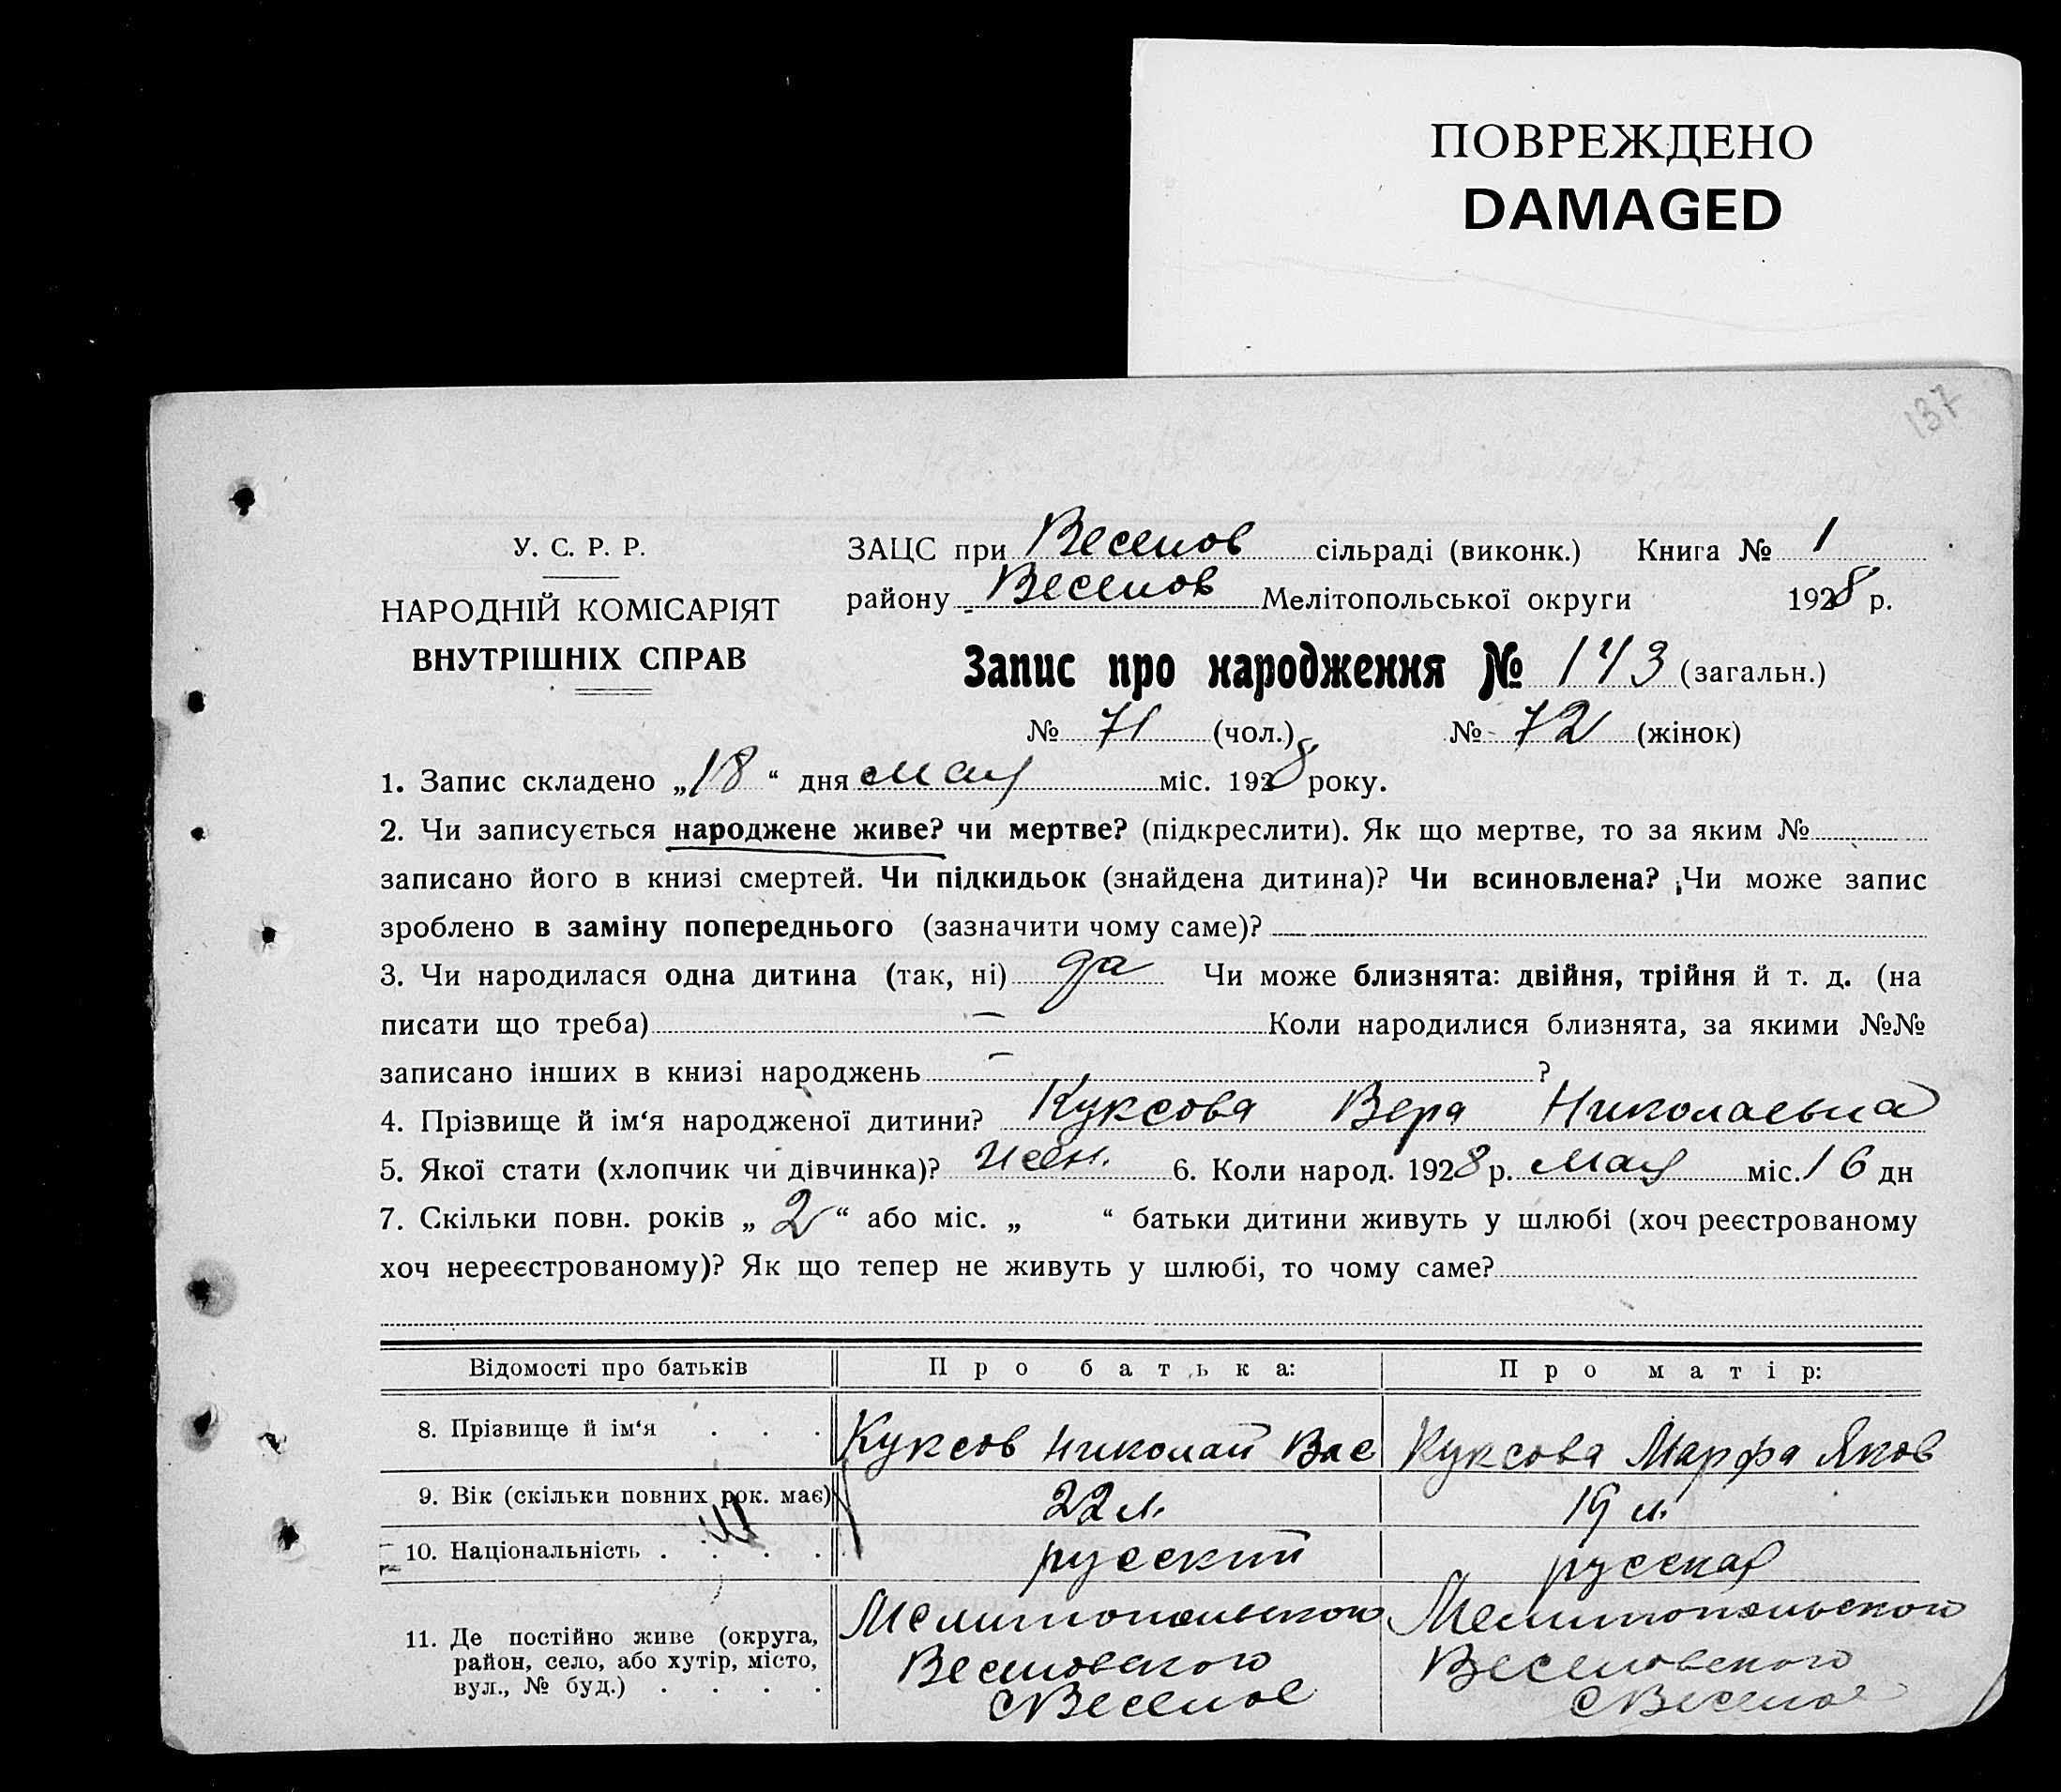 ПОВРЕЖДЕНО
DAMAGED
137
У. С. Р. Р.
НАРОДНІЙ КОМІСАРІЯТ
ВНУТРІШНІХ СПРАВ
ЗАЦС при Веселов сільраді (виконк.) Книга № 1
району Веселов Мелітопольської округи 1928 р.
Запис про народження № 143 (загальн.)
№ 71 (чол.) № 72 (жінок)
1. Запис складено „18“ дня мая міс. 1928 року.
2. Чи записується народжене живе? чи мертве? (підкреслити). Як що мертве, то за яким №
записано його в книзі смертей. Чи підкидьок (знайдена дитина)? Чи всиновлена? Чи може запис
зроблено в заміну попереднього (зазначити чому саме)?
3. Чи народилася одна дитина (так, ні) да Чи може близнята: двійня, трійня й т. д. (на
писати що треба) — Коли народилися близнята, за якими №№
записано інших в книзі народжень — ?
4. Прізвище й ім‘я народженої дитини? Куксова Вера Николаевна
5. Якої стати (хлопчик чи дівчинка)? жен. 6. Коли народ. 1928 р. мая міс. 16 дн
7. Скільки повн. років „2“ або міс. „ “ батьки дитини живуть у шлюбі (хоч реєстрованому
хоч нереєстрованому)? Як що тепер не живуть у шлюбі, то чому саме?
Відомості про батьків Про батька: Про матір:
8. Прізвище й ім‘я . . . Куксов Николай Вас Куксова Марфа Яков
9. Вік (скільки повних рок. має) 22 л. 19 л.
10. Національність . . . . русский русская
11. Де постійно живе (округа, район, село, або хутір, місто, вул., № буд.) . . . .
Мелитопольского Мелитопольского
Веселовского Веселовского
с Веселое с Веселое